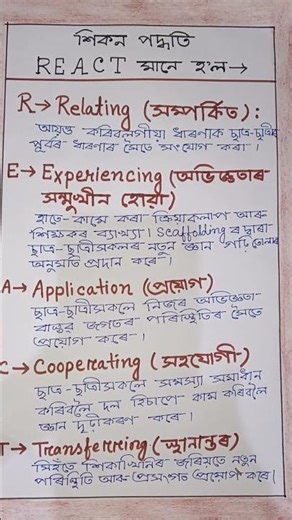 শিকন পদ্ধতি
REACT মানে হ'ল→
R→ Relating (সম্পৰ্কিত) :
আয়ত্ত কৰিবলগীয়া ধাৰণাক ছাত্ৰ-ছাত্ৰীৰ
পূৰ্বৰ ধাৰণাৰ সৈতে সংযোগ কৰা।
E→ Experiencing (অভিজ্ঞতাৰ
সন্মুখীন হোৱা)
হাতে-কামে কৰা ক্ৰিয়াকলাপ আৰু
শিক্ষকৰ ব্যাখ্যা। Scaffolding ৰ দ্বাৰা
ছাত্ৰ-ছাত্ৰীসকলৰ নতুন জ্ঞান গঢ়ি তোলাৰ
অনুমতি প্ৰদান কৰে।
A→ Application (প্ৰয়োগ)
ছাত্ৰ-ছাত্ৰীসকলে নিজৰ অভিজ্ঞতা
বাস্তৱ জগতৰ পৰিস্থিতিৰ সৈতে
প্ৰয়োগ কৰে।
C→ Cooperating (সহযোগী)
ছাত্ৰ-ছাত্ৰীসকলে সমস্যা সমাধান
কৰিবলৈ দল হিচাপে কাম কৰিবলৈ
জ্ঞান দৃঢ়ীকৰণ কৰে।
T→ Transferring (স্থানান্তৰ)
সিহঁতে শিকাখিনিৰ জৰিয়তে নতুন
পৰিস্থিতি আৰু প্ৰসংগত প্ৰয়োগ কৰে।